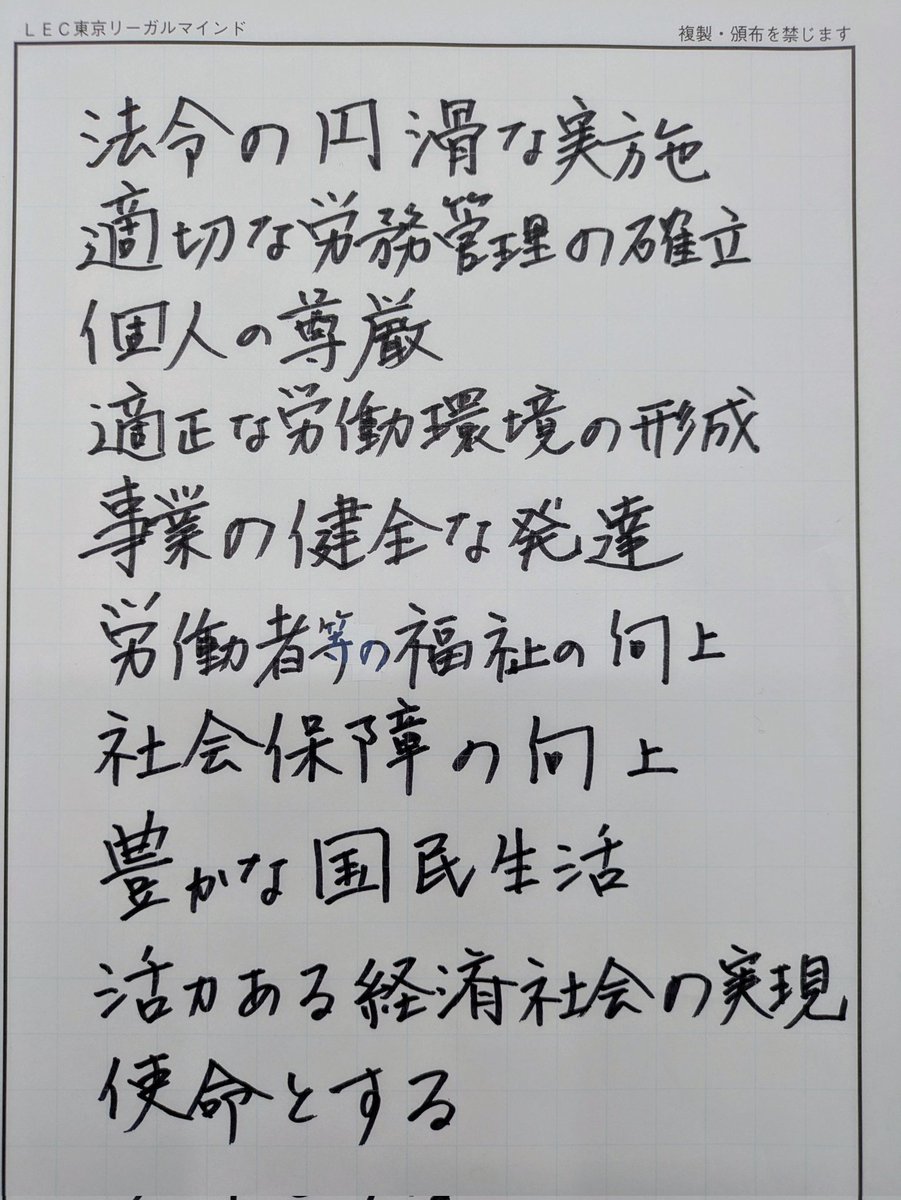 LEC東京リーガルマインド
複製・頒布を禁じます
法令の円滑な実施
適切な労務管理の確立
個人の尊厳
適正な労働環境の形成
事業の健全な発達
労働者等の福祉の向上
社会保障の向上
豊かな国民生活
活力ある経済社会の実現
使命とする